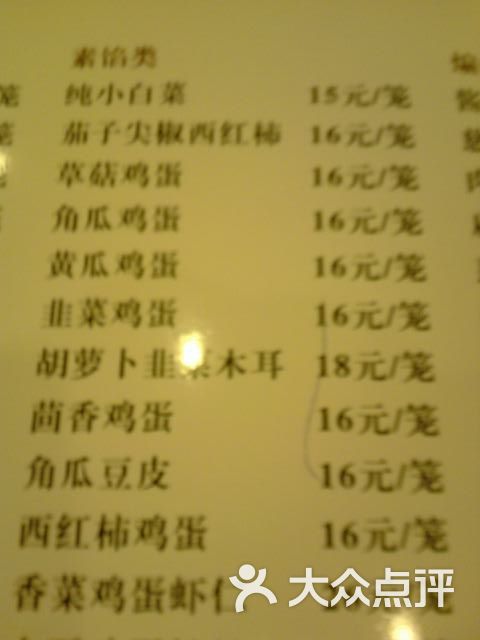 素馅类
纯小白菜 15元/笼
茄子尖椒西红柿 16元/笼
草菇鸡蛋 16元/笼
角瓜鸡蛋 16元/笼
黄瓜鸡蛋 16元/笼
韭菜鸡蛋 16元/笼
胡萝卜韭菜木耳 18元/笼
茴香鸡蛋 16元/笼
角瓜豆皮 16元/笼
西红柿鸡蛋 16元/笼
香菜鸡蛋虾仁
大众点评